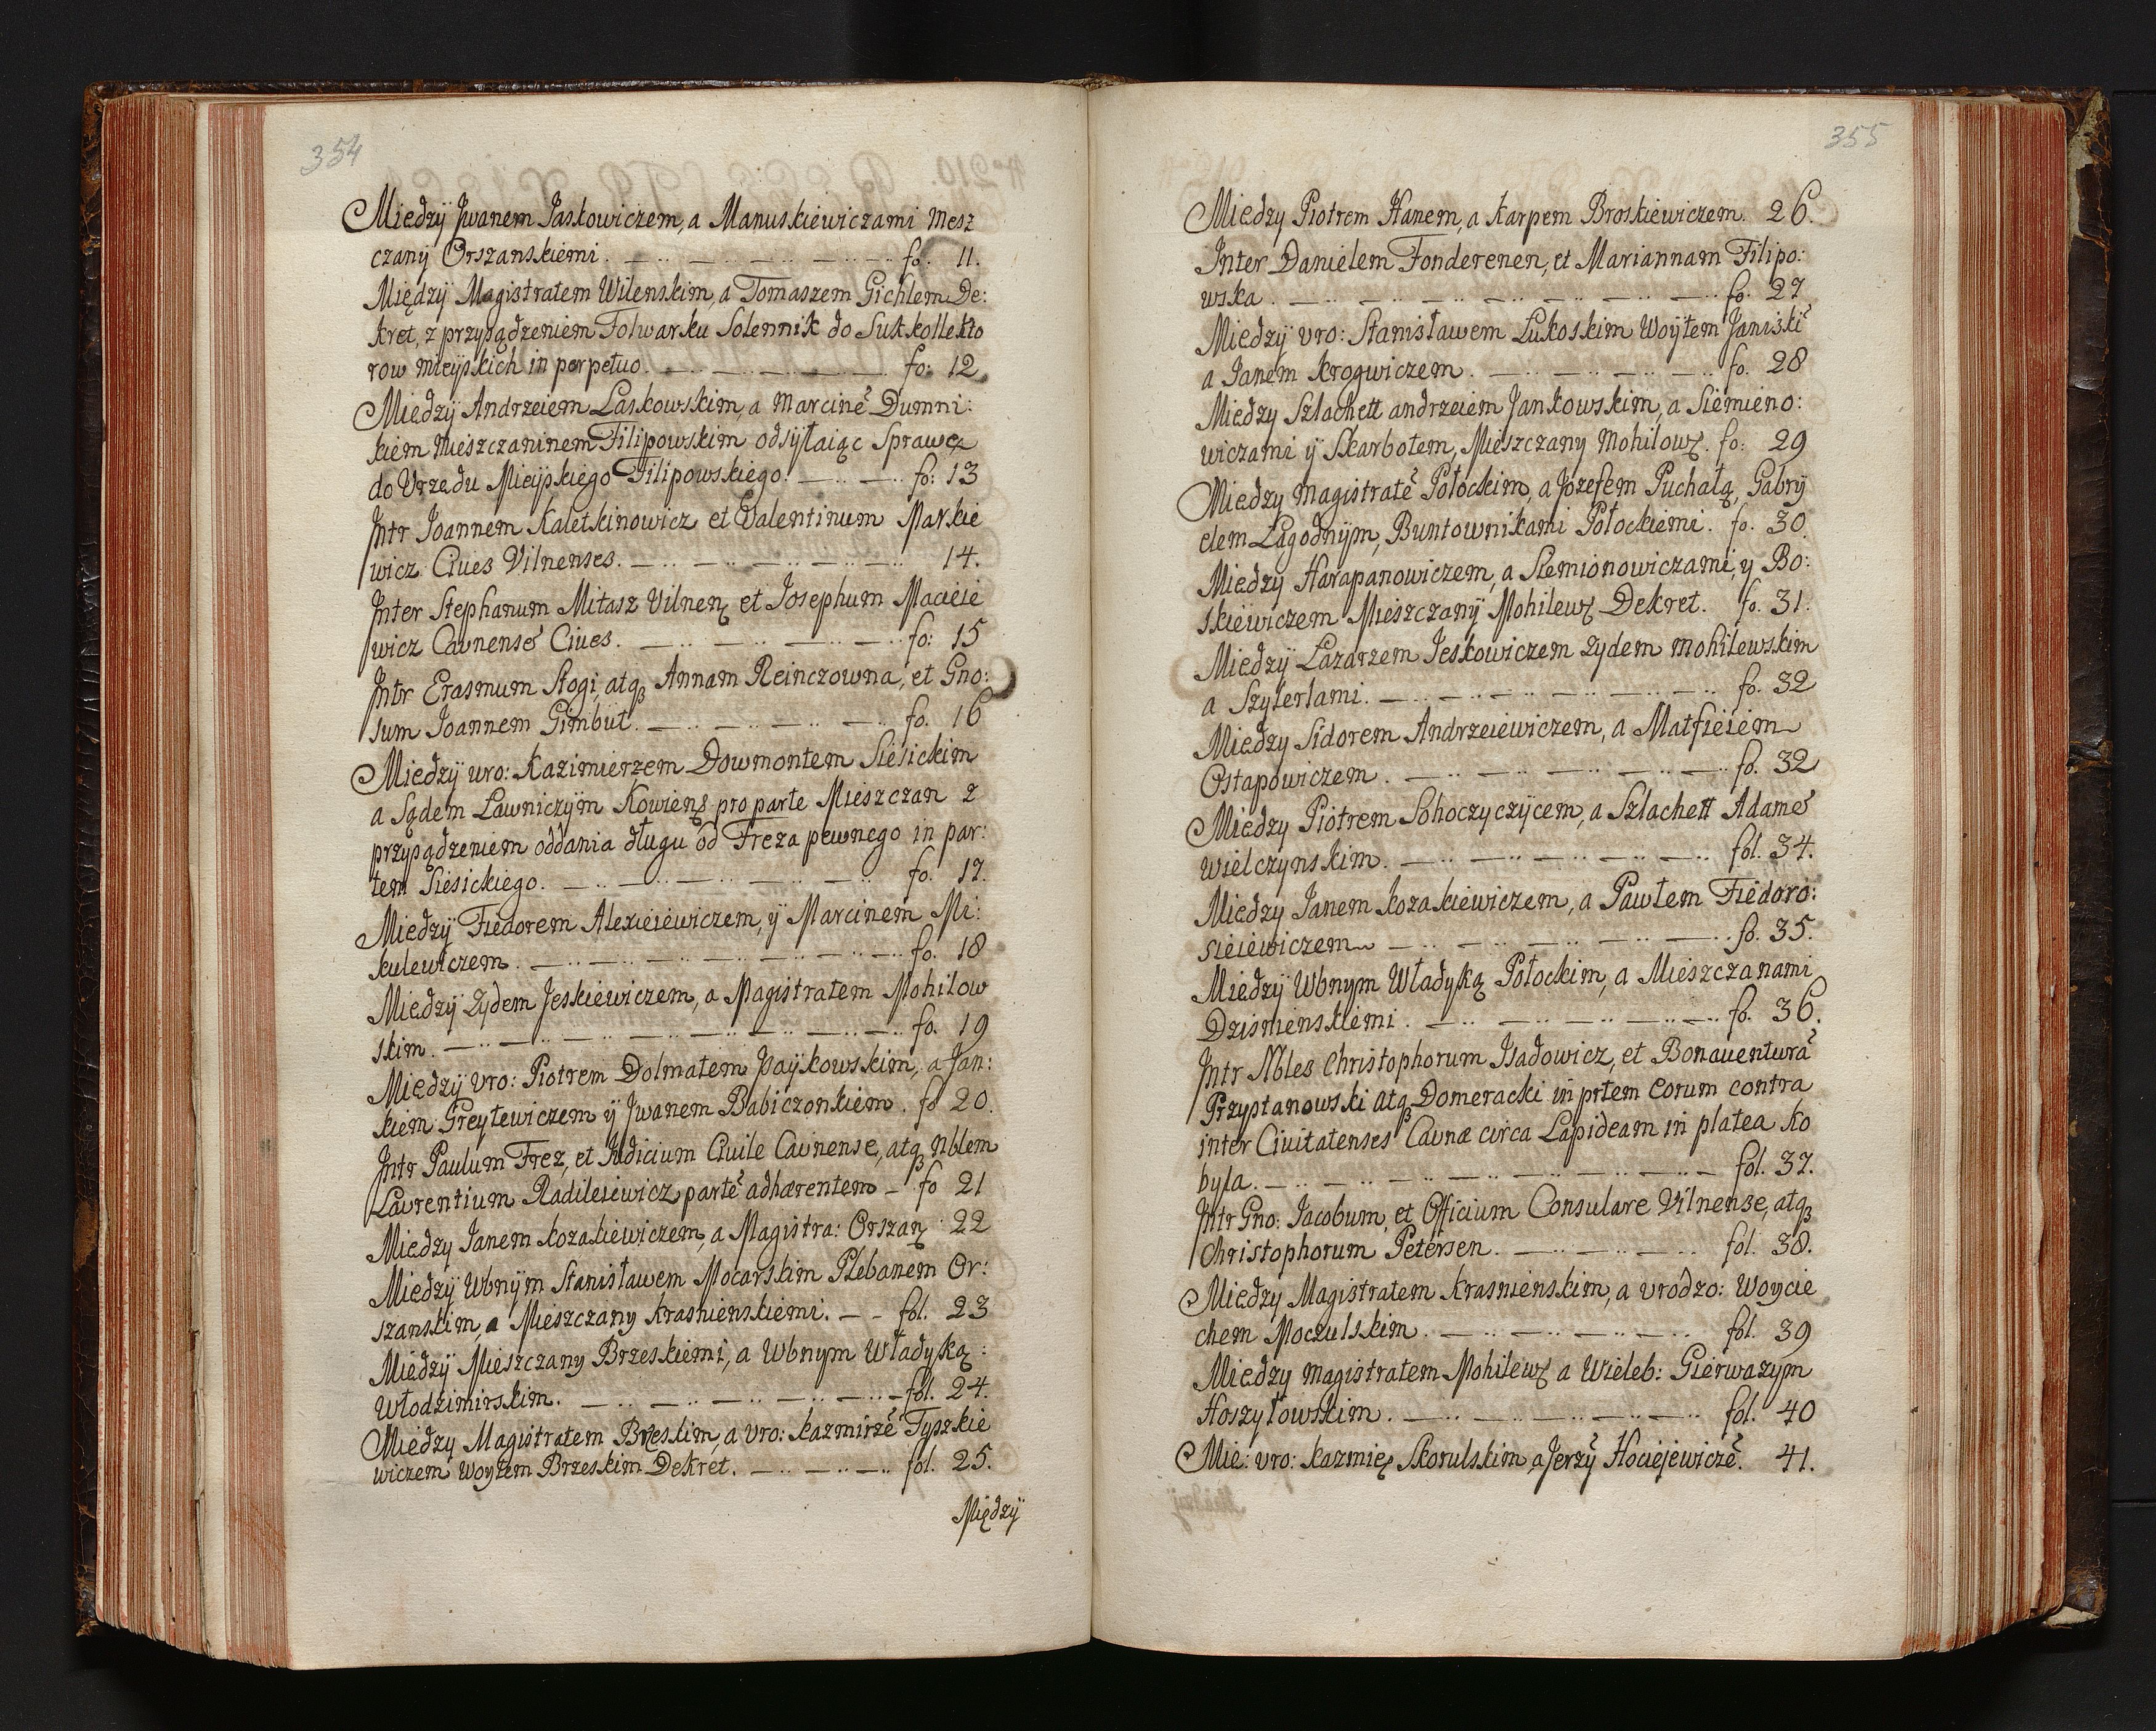 354
Miedzÿ Jwanem Jaskowiczem, a Manuskiewiczami mesz
czanÿ Orszanskiemi. fo. 11.
Międzÿ Magistratem Wilenskim, a Tomaszem Gichlem De:
kret, z przysądzeniem Folwarku Solennik do Sukkollekto
row mieÿskich in perpetuo. fo: 12
Miedzÿ Andrzeiem Laskowskim, a Marcinē Dumni:
kiem Mieszczaninem Filipowskim odsÿłaiąc Sprawę
do Vrzedu Mieÿskiego Filipowskiego. fo: 13
Intr Joannem Kaletkinowicz et Valentinum Markie
wicz Ciues Vilnenses. 14.
Inter Stephanum Mitasz Vilnen et Josephum Macieie
wicz Caunensē Ciues. fo: 15
Intr Erasmum Stogi, atq Annam Reinczowna, et Gno:
sum Joannem Gimbut. fo. 16
Miedzÿ uro: Kazimierzem Dowmontem Siesickim
a Sądem Ławniczÿm Kowiens pro parte Mieszczan z
przysądzeniem oddania długu od Freza pewnego in par:
tem Siesickiego. fo. 17.
Miedzÿ Fiedorem Alexieiewiczem, ÿ Marcinem Mi:
kulewiczem. fo. 18
Miedzÿ Zÿdem Jeskiewiczem, a Magistratem Mohilow
skim. fo. 19
Miedzÿ vro: Piotrem Dolmatem Jsaÿkowskim, a Jan:
kiem Greytewiczem ÿ Jwanem Babiczonkiem. fo 20.
Intr Paulum Frez, et Iudicium Ciuile Caunense, atq Nblem
Laurentium Radileiewicz partē adhærentem fo 21
Miedzy Janem Kozakiewiczem, a Magistra: Orszan 22
Miedzÿ Wbnÿm Stanisławem Mocarskim Plebanem Or:
szanskim, a Mieszczany Krasnienskiemi. fol. 23
Miedzÿ Mieszczany Brzeskiemi, a Wbnym Władyką:
Włodzimirskim. fol. 24.
Miedzy Magistratem Brzeskim, a vro: Kazmirzē Tyszkie
wiczem Woytem Brzeskim Dekret. fol. 25.
Międzÿ
355
Miedzy Piotrem Hanem, a Karpem Broskiewiczem. 26.
Inter Danielem Fonderenen, et Mariannam Filipo:
wska. fo. 27
Miedzÿ vro: Stanisławem Lukoskim Woÿtem Janiski
a Janem Krogwiczem. fo. 28
Miedzy Szlachett andrzeiem Jankowskim, a Siemieno:
wiczami ÿ Skarbotem, Mieszczany Mohilows. fo: 29
Miedzy Magistratē Połockim, a Jozefem Puchałą, Gabrÿ
elem Łagodnÿm, Buntownikami Połockiemi. fo. 30.
Miedzy Harapanowiczem, a Siemionowiczami, y Bo:
skiewiczem Mieszczanÿ Mohilews Dekret. fo. 31.
Miedzÿ Lazarzem Jeskowiczem Zydem Mohilewskim
a Szyterlami. fo. 32
Miedzy Sidorem Andrzeiewiczem, a Matfieiem
Ostapowiczem. fo. 32
Miedzy Piotrem Sohoczyczÿcem, a Szlachett Adamē
Wielczynskim. fol. 34.
Miedzy Janem Kozakiewiczem, a Pawłem Fiedoro:
sieiewiczem. fo. 35.
Miedzÿ Wbnym Władyką Połockim, a Mieszczanami
Dzisnienskiemi. fo. 36.
Intr Nbles Christophorum Isadowicz, et Bonauenturā
Przystanowski atq Domeracki in prtem eorum contra
inter Ciuitatenses Caunæ circa Lapideam in platea Ko
byla. fol. 37.
Intr Gno: Jacobum, et Officium Consulare Vilnense, atq
Christophorum Petersen. fol. 38.
Miedzy Magistratem Krasnienskim, a vrodzo: Woycie
chem Moczulskim. fol. 39
Miedzy Magistratem Mohilews a Wieleb: Gierwazym
Hoszyłowskim. fol. 40
Mie: vro: Kazmie Skorulskim, a Jerzÿ Hociejewiczē. 41.